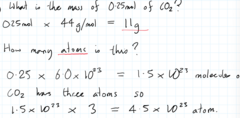 What is the mass of 0.25mol of CO₂?
0.25mol × 44g/mol = 11g
How many atoms is this?
0.25 × 6.0×10²³ = 1.5×10²³ molecules
CO₂ has three atoms so
1.5×10²³ × 3 = 4.5×10²³ atom.